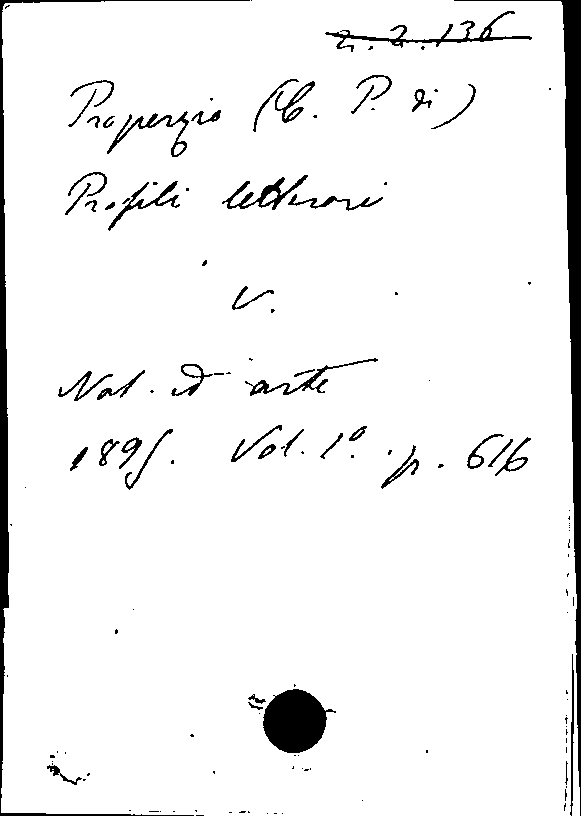 2.2.136
Properzio (C. P. di)
Profili letterari
V.
Nat. ed arte
1895. Vol. 1º. p. 616